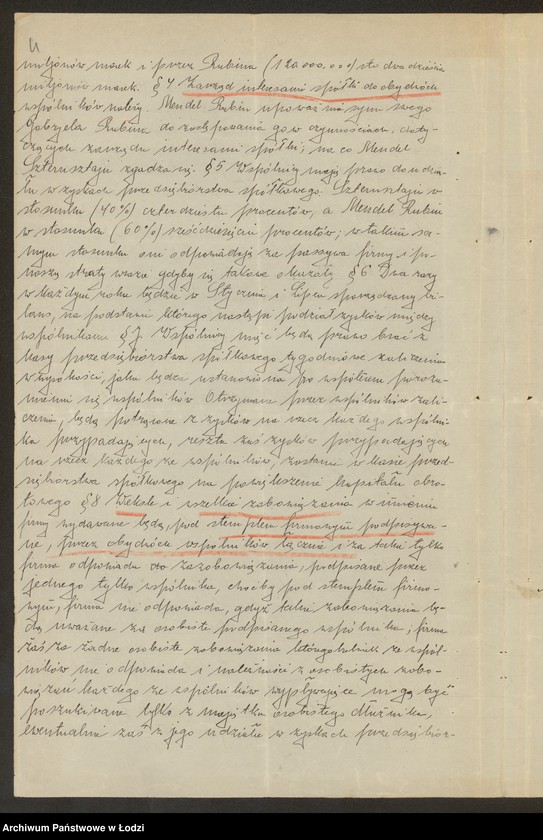 miljonów marek i przez Rubina (120.000.000) sto dwadzieścia
miljonów marek. § 4 Zarząd interesami spółki do obydwóch
wspólników należy. Mendel Rubin upoważnia syna swego
Gabryela Rubina do zastępowania go w czynnościach, doty-
czących zarządu interesami spółki, na co Mendel
Szternsztajn zgadza się. § 5 Wspólnicy mają prawo do udzia-
łu w zyskach przedsiębiorstwa spółkowego Szternsztajn w
stosunku (40%) czterdziestu procentów, a Mendel Rubin
w stosunku (60%) sześćdziesięciu procentów; w takim sa-
mym stosunku oni odpowiadają za passywa firmy i po-
noszą straty w razie gdyby się takowe okazały § 6 Dwa razy
w każdym roku będzie w Styczniu i Lipcu sporządzany bi-
lans, na podstawie którego nastąpi podział zysków między
wspólnikami § 7. Wspólnicy mieć będą prawo brać z
kasy przedsiębiorstwa spółkowego tygodniowe zaliczenia
w wysokości, jaka będzie ustanowiona po wspólnem porozu-
mieniu się wspólników Otrzymane przez wspólników zali-
czenia, będą potrącone z zysków na rzecz każdego wspólni-
ka przypadających, reszta zaś zysków przypadających
na rzecz każdego ze wspólników, zostanie w kasie przed-
siębiorstwa spółkowego na powiększenie kapitału obro-
towego § 8 Weksle i wszelkie zobowiązania w imieniu
firmy wydawane będą, pod stemplem firmowym podpisywa-
ne, przez obydwóch wspólników łącznie i za takie tylko
firma odpowiada do zazobowiązania, podpisane przez
jednego tylko wspólnika, choćby pod stemplem firmo-
wym, firma nie odpowiada, gdyż takie zobowiązania bę-
dą uważane za osobiste podpisanego wspólnika; firma
zaś za żadne osobiste zobowiązania któregokolwiek ze wspól-
ników nie odpowiada i należności z osobistych zobo-
wiązań każdego ze wspólników wypływające mogą być
poszukiwane tylko z majątku osobistego dłużnika,
ewentualnie zaś z jego udziału w zyskach przedsiębior-
Archiwum Państwowe w Łodzi
szukajwarchiwach.gov.pl